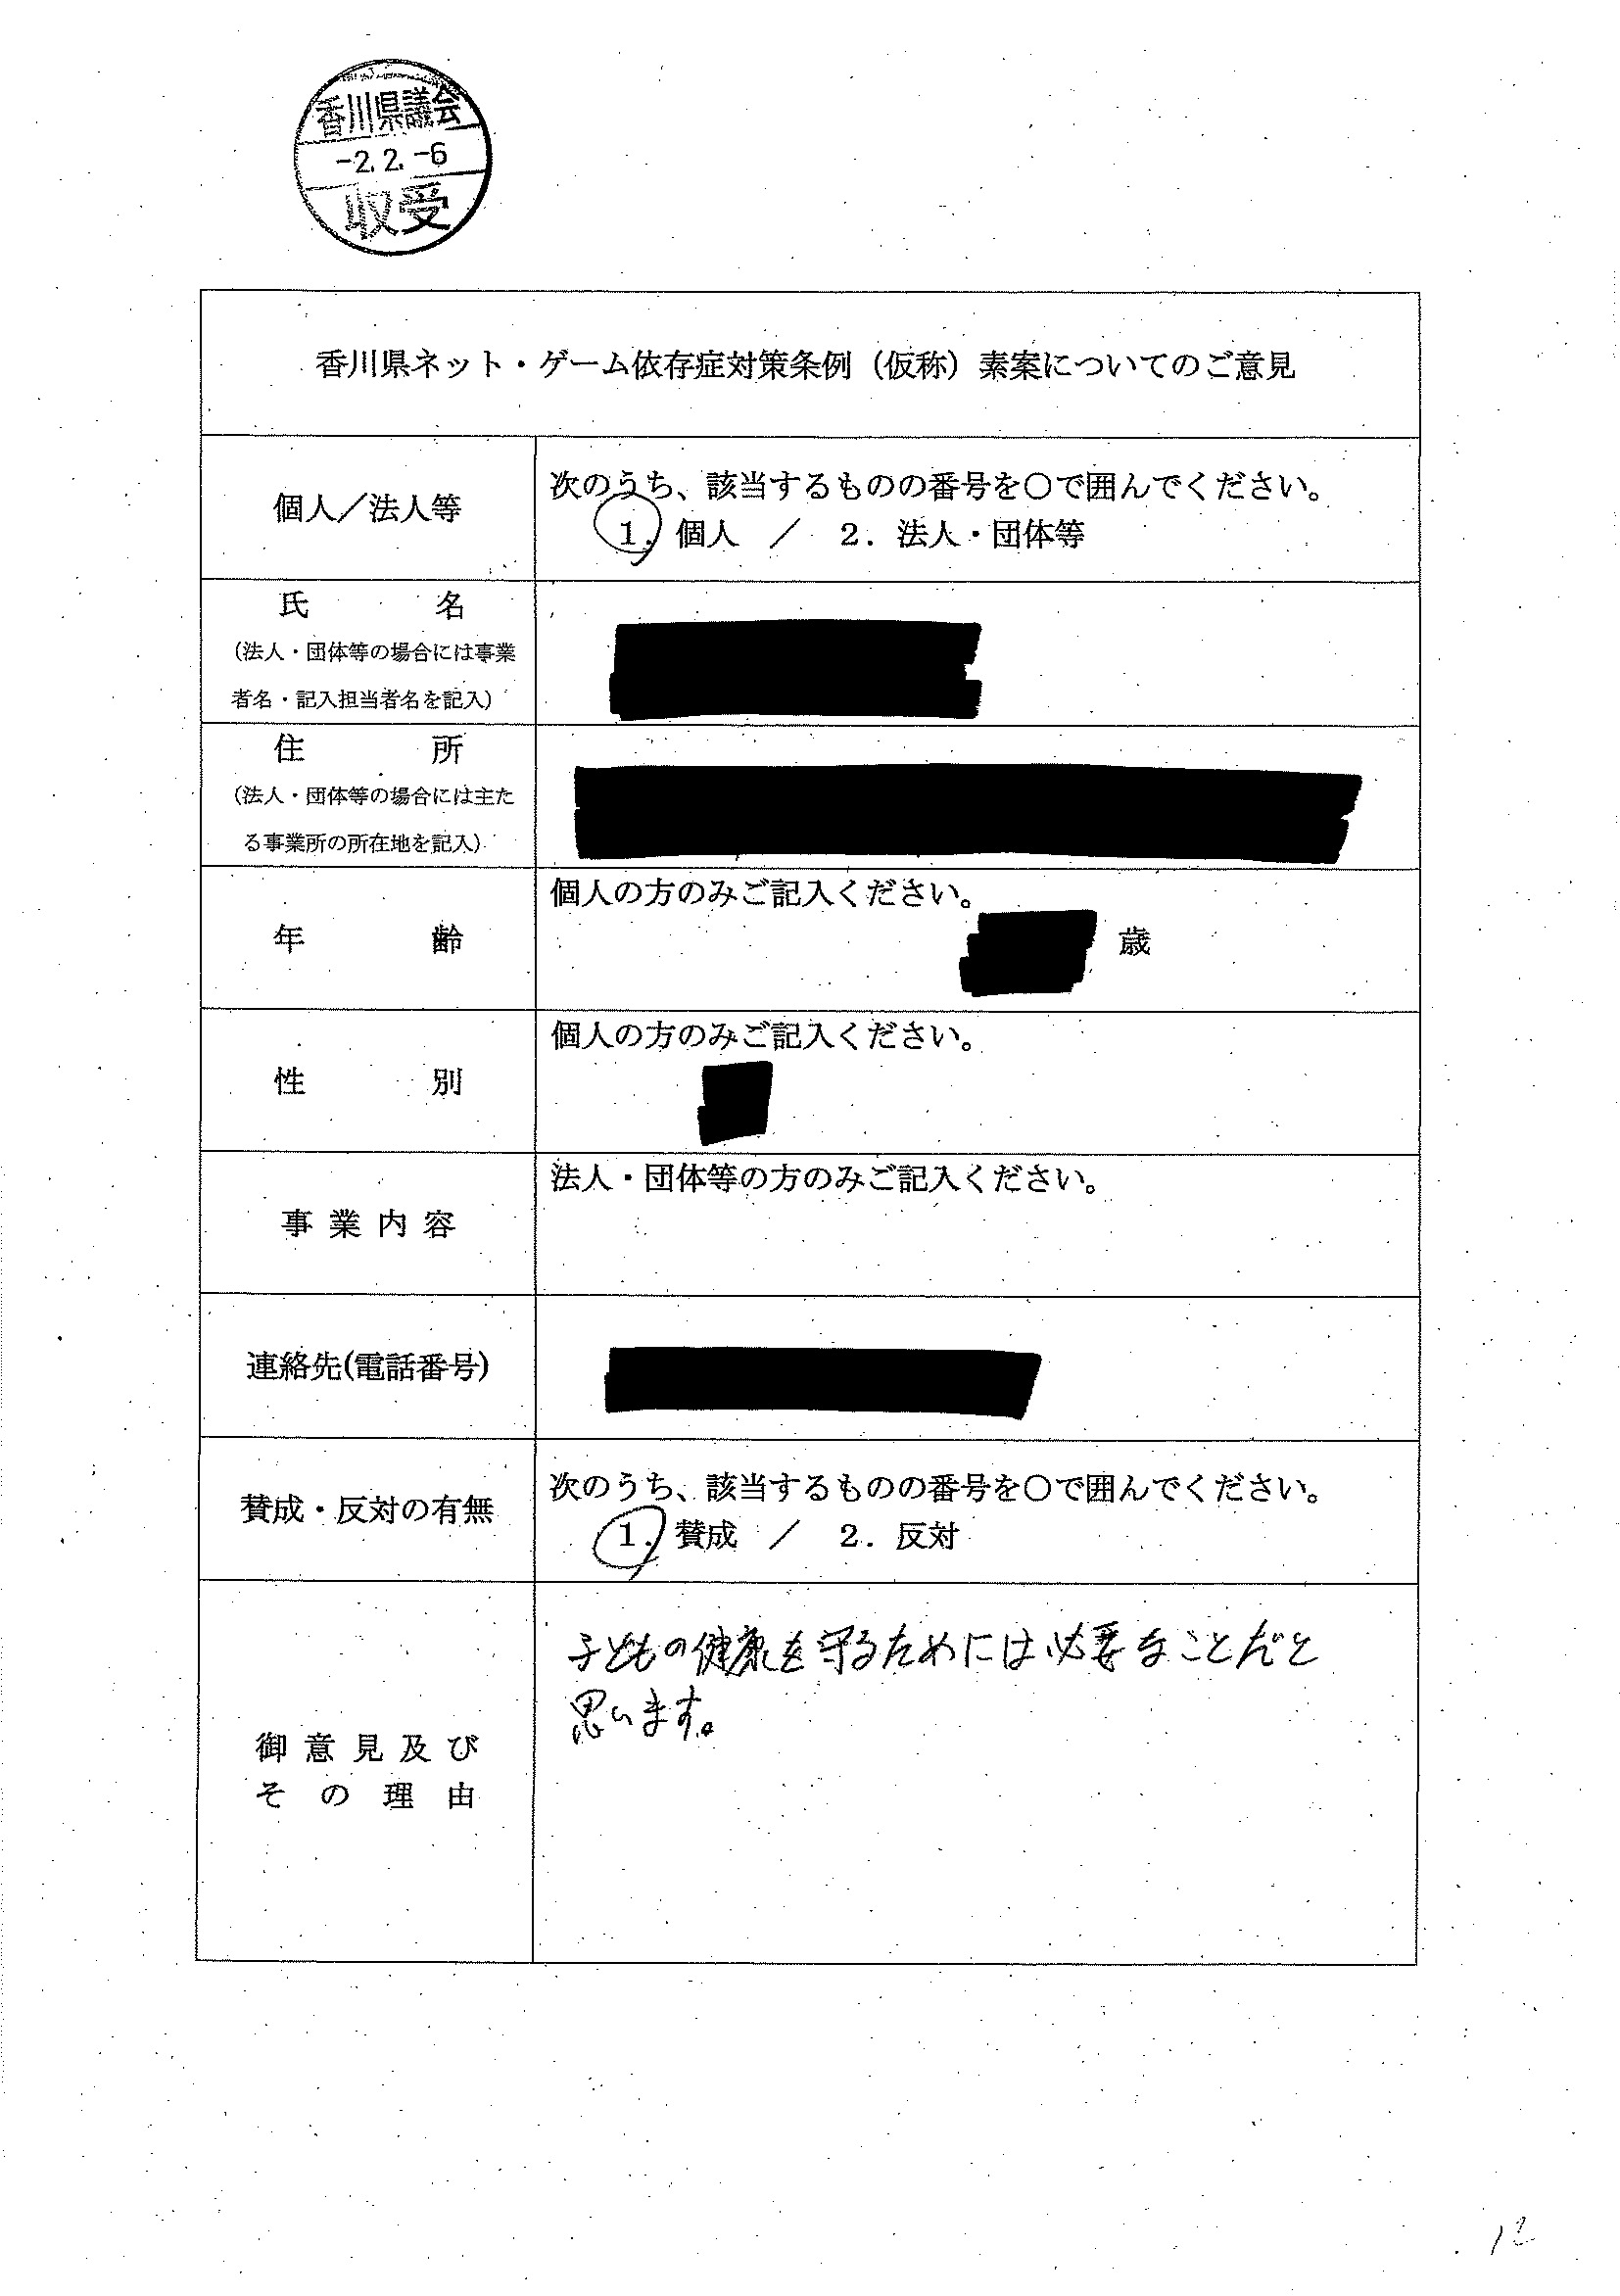 香川県議会
-2.2.-6
収受
香川県ネット・ゲーム依存症対策条例（仮称）素案についてのご意見
個人／法人等
次のうち、該当するものの番号を○で囲んでください。
1. 個人 ／ 2. 法人・団体等
氏 名
（法人・団体等の場合には事業
者名・記入担当者名を記入）
住 所
（法人・団体等の場合には主た
る事業所の所在地を記入）
年 齢
個人の方のみご記入ください。
歳
性 別
個人の方のみご記入ください。
事業内容
法人・団体等の方のみご記入ください。
連絡先(電話番号)
賛成・反対の有無
次のうち、該当するものの番号を○で囲んでください。
1. 賛成 ／ 2. 反対
御意見及び
その理由
子どもの健康を守るためには必要なことだと
思います。
12